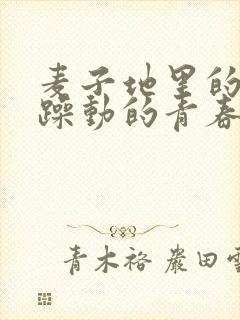 麦子地里的
躁動的青春
青木裕 嚴田雪